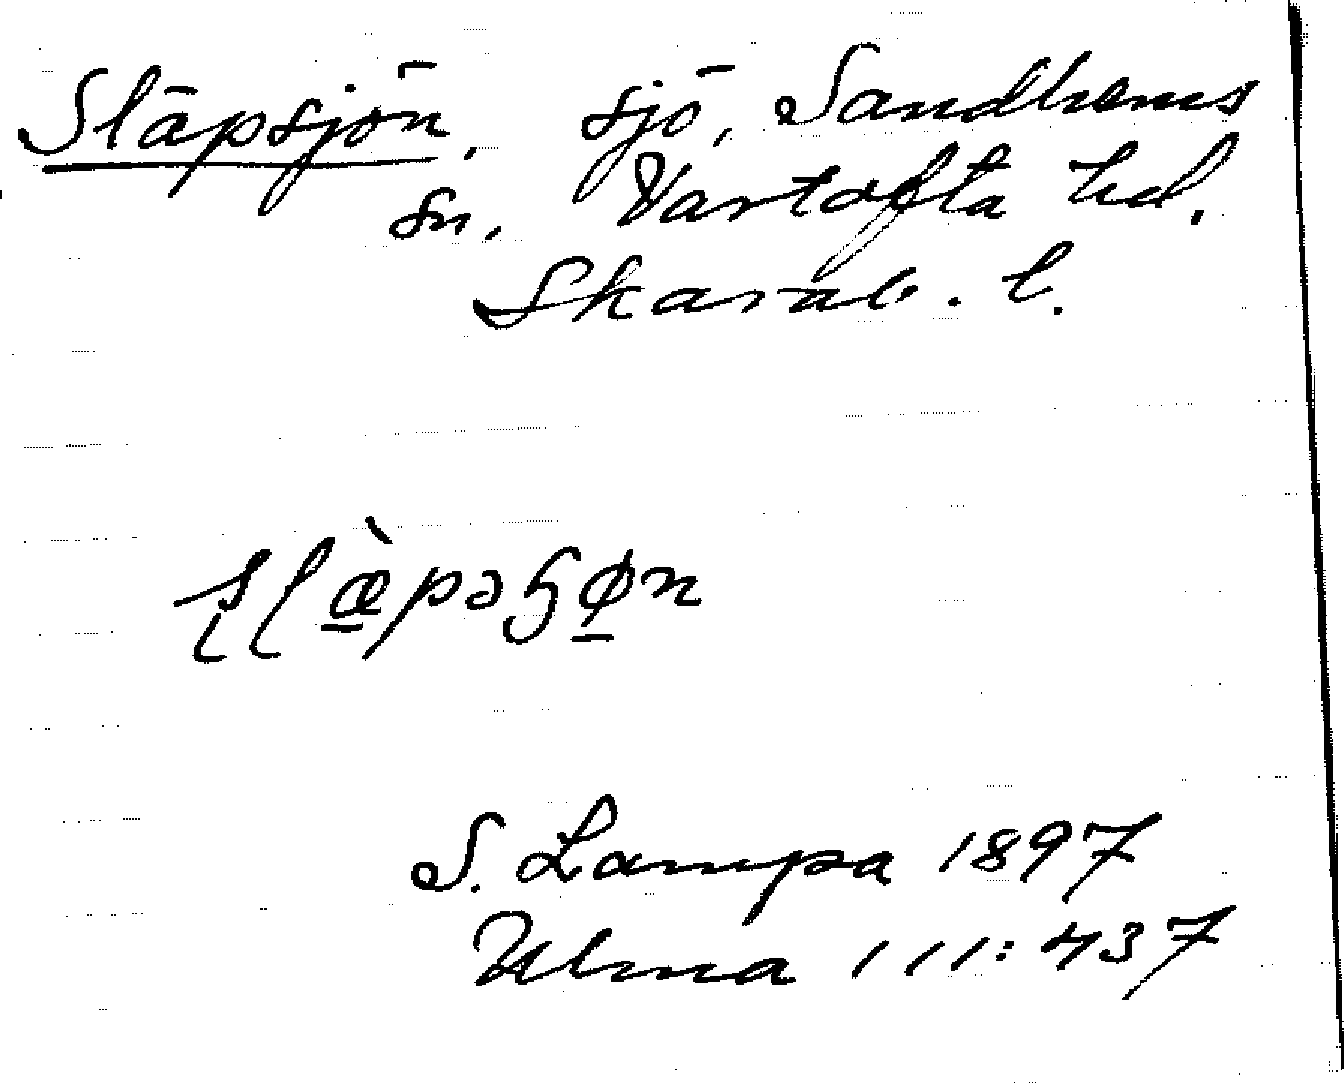 Släpsjön, sjö, Sandhems
sn, Vartofta hd.
Skarab. l.
S. Lampa 1897
Ulma 111:437